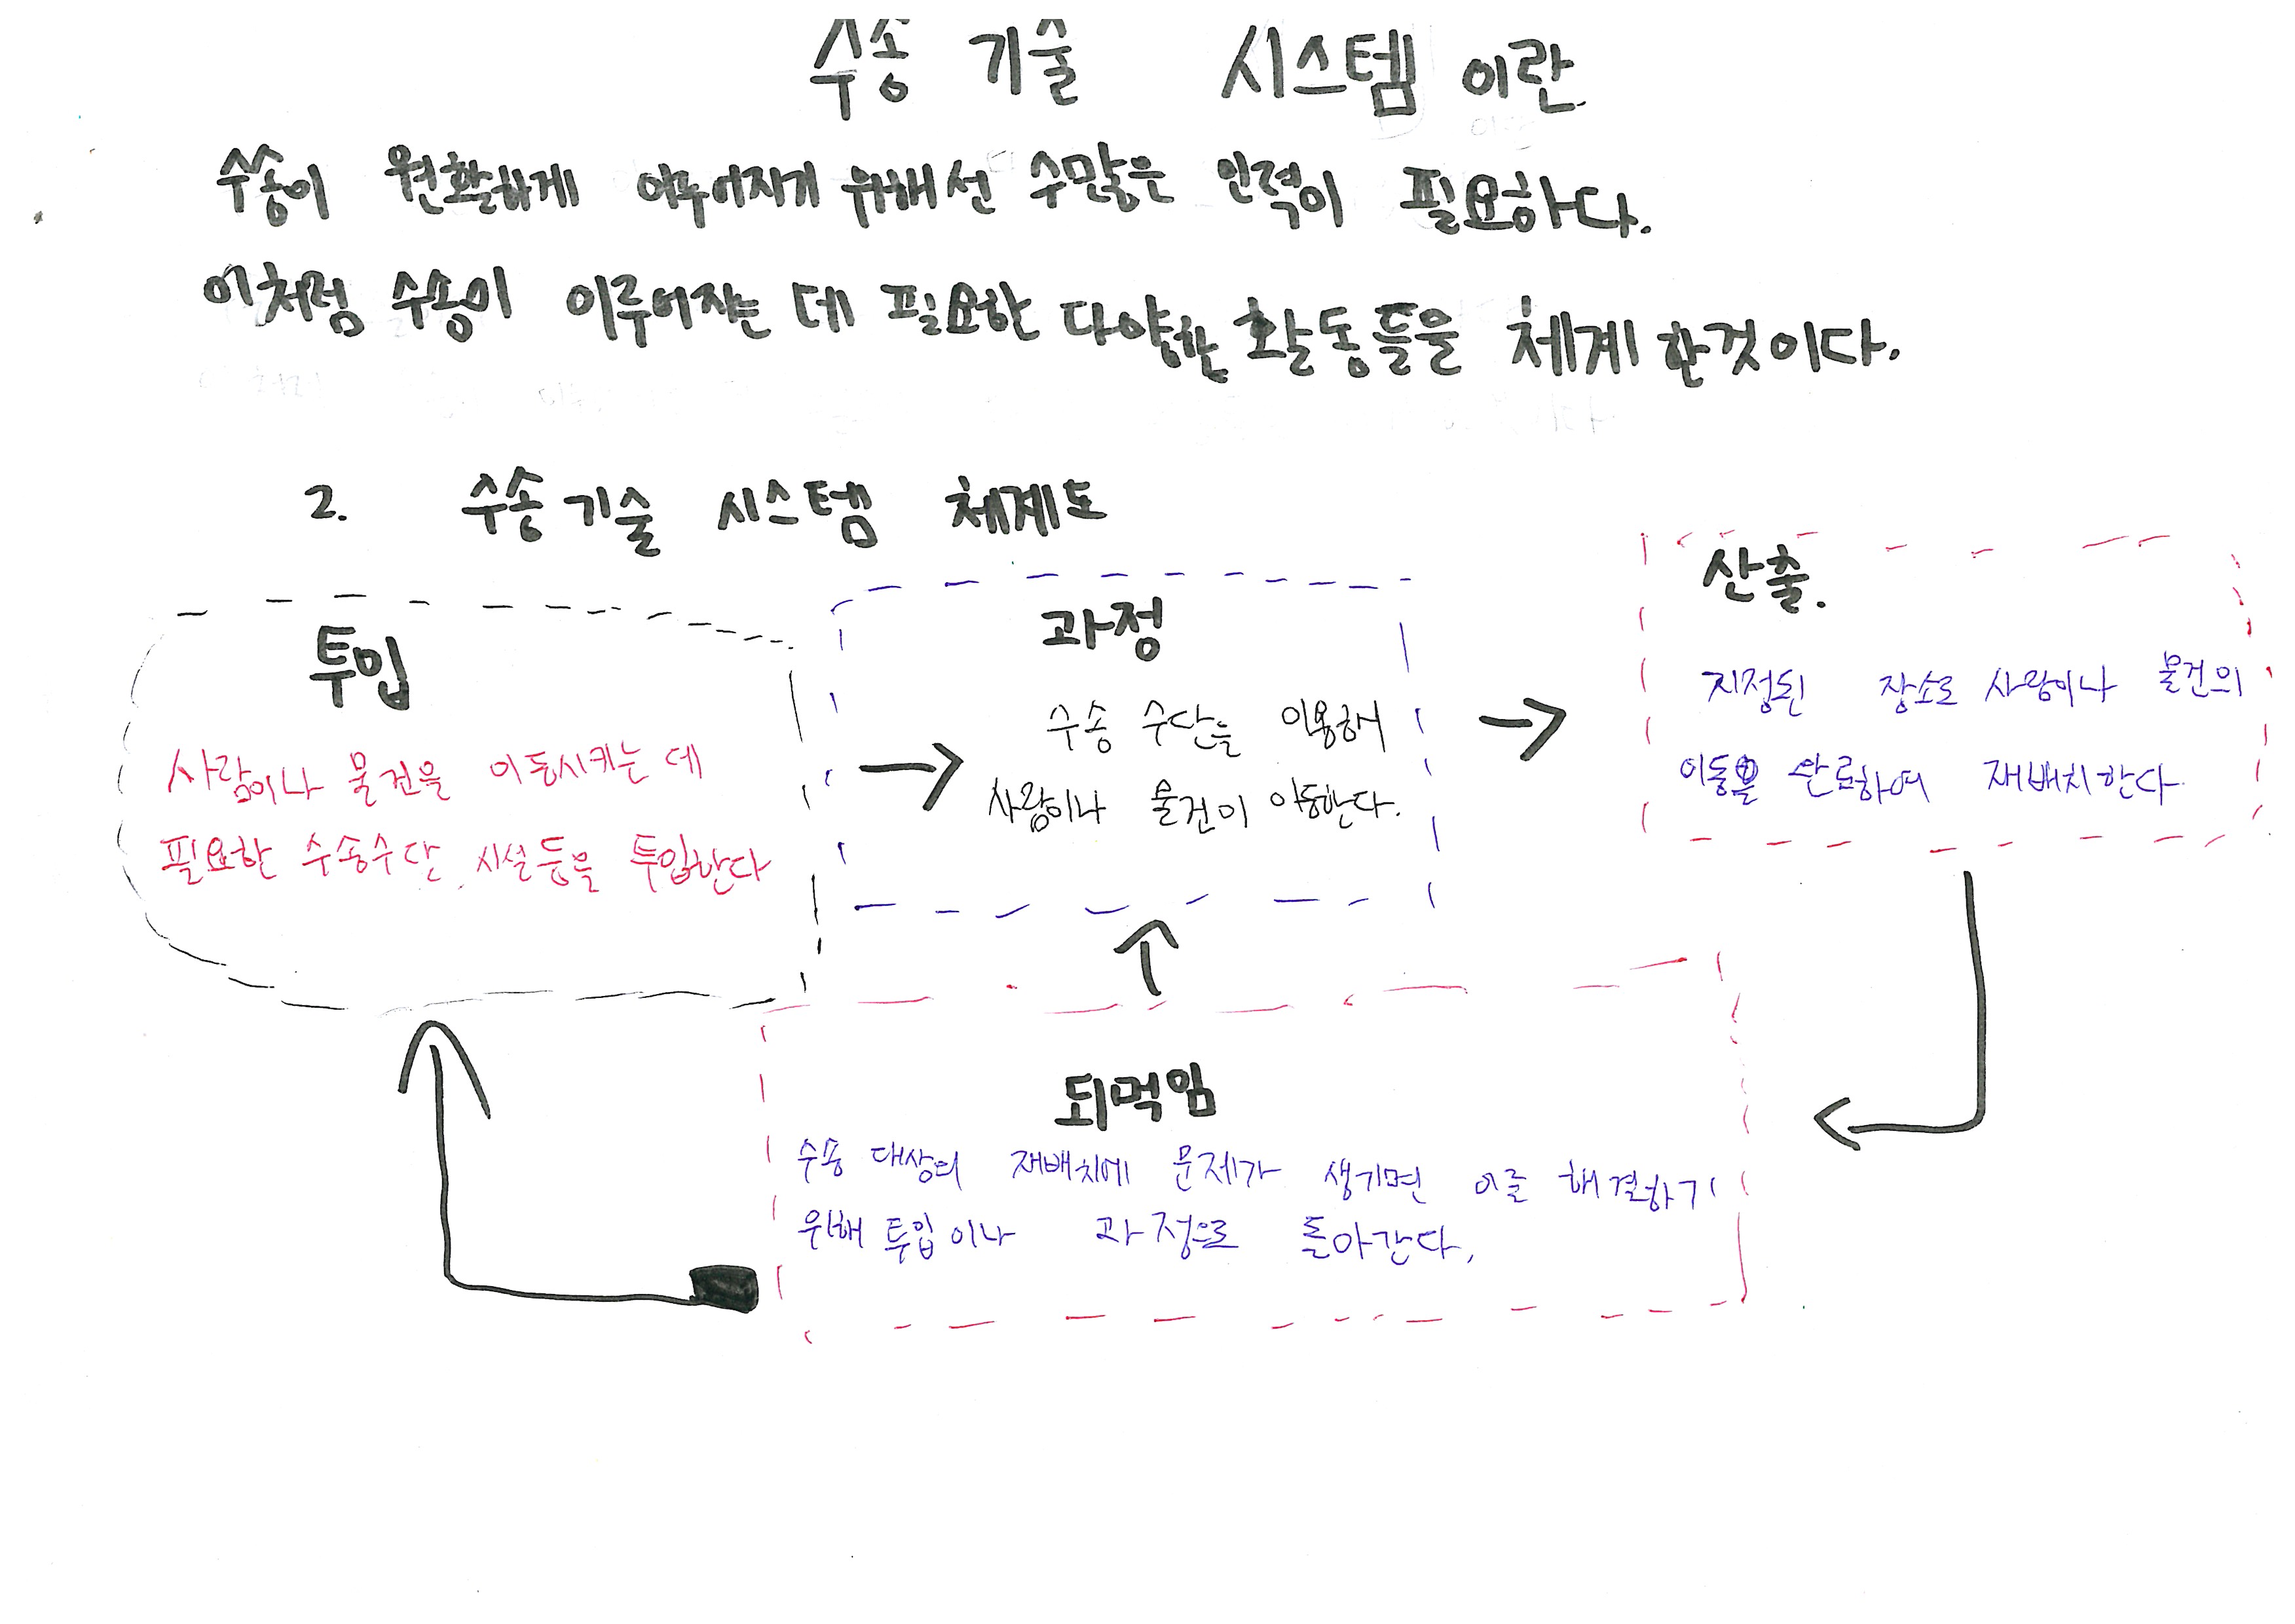 수송 기술 시스템 이란
수송이 원활하게 이루어지게 위해선 수많은 인력이 필요하다.
이처럼 수송이 이루어지는 데 필요한 다양한 활동들을 체계 한것이다.
2. 수송기술 시스템 체계도
투입
사람이나 물건을 이동시키는 데
필요한 수송수단, 시설등을 투입한다
과정
수송 수단을 이용해
사람이나 물건이 이동한다.
산출.
지정된 장소로 사람이나 물건의
이동을 완료하여 재배치한다
되먹임
수송 대상의 재배치에 문제가 생기면 이를 해결하기
위해 투입이나 과정으로 돌아간다.